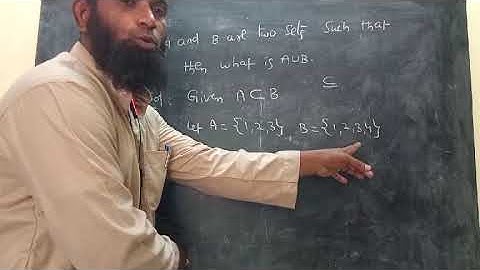 and B are two sets such that
then what is A∪B.
Given A⊂B
⊆
let A = {1,2,3}, B = {1,2,3,4}